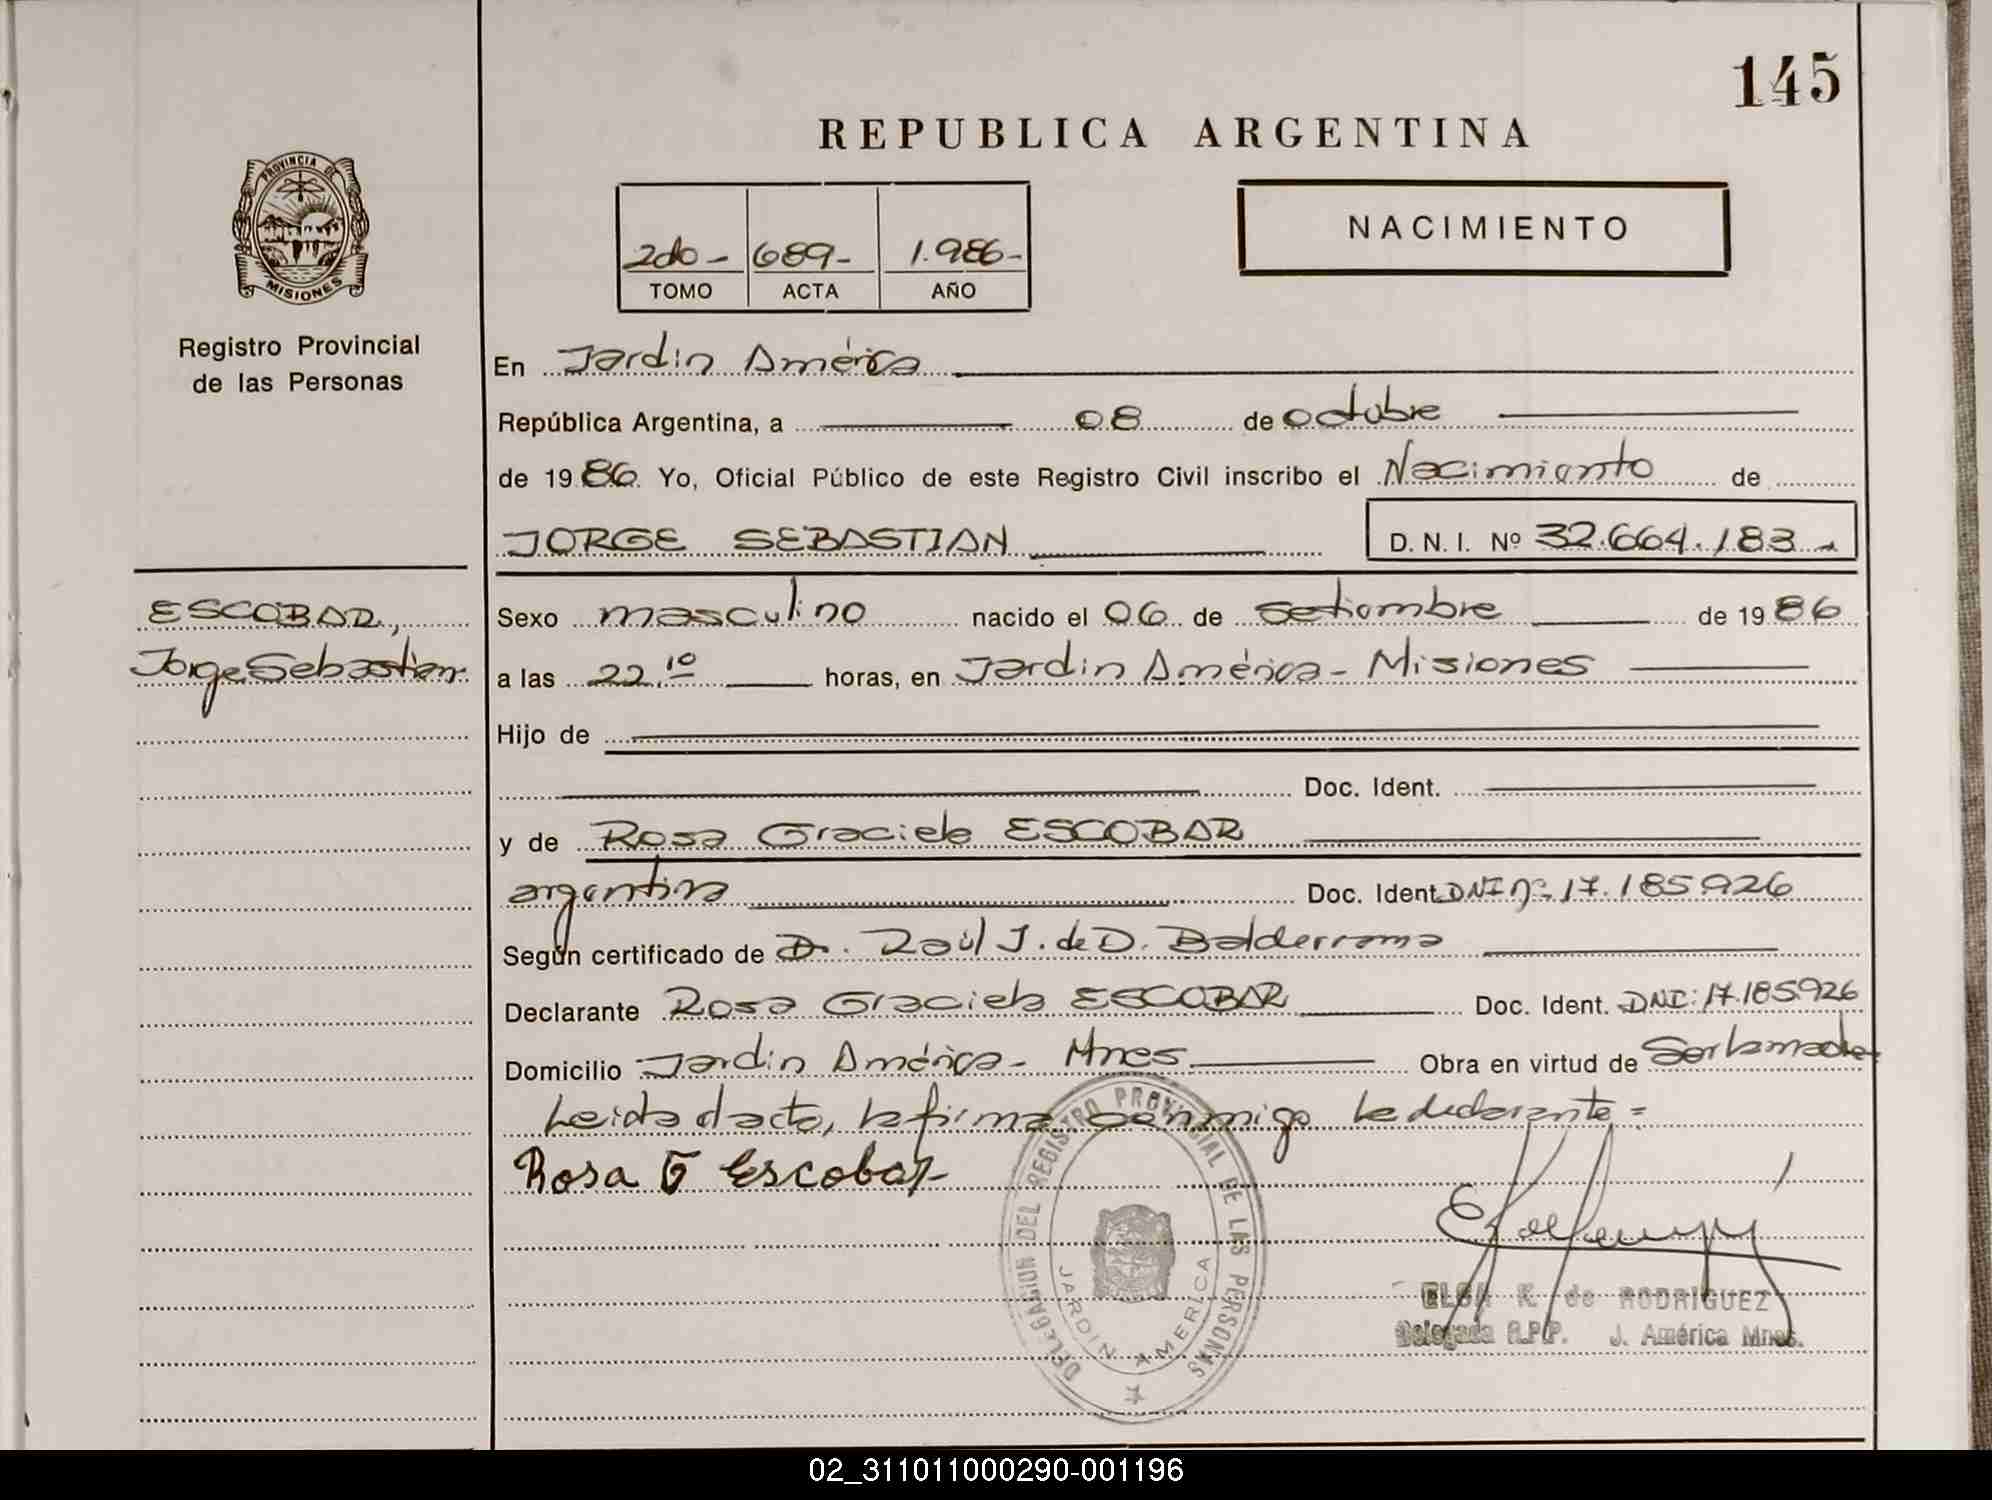 145
REPUBLICA ARGENTINA
PROVINCIA DE
MISIONES
Registro Provincial
de las Personas
2do - 689- 1.986-
TOMO ACTA AÑO
NACIMIENTO
En Jardin América
República Argentina, a 08 de octubre
de 1986 Yo, Oficial Público de este Registro Civil inscribo el Nacimiento de
JORGE SEBASTIAN D. N. I. Nº 32.664.183-
ESCOBAR,
Jorge Sebastian
Sexo masculino nacido el 06 de setiembre de 1986
a las 22.10 horas, en Jardin América - Misiones
Hijo de
Doc. Ident.
y de Rosa Graciela ESCOBAR
argentina Doc. Ident. DNI nº 17.185.926
Según certificado de Dr. Raúl J. de D. Balderrama
Declarante Rosa Graciela ESCOBAR Doc. Ident. DNI: 17.185.926
Domicilio Jardin América - Mnes Obra en virtud de Ser la madre
Leida el acta, la firma conmigo la declarante =
Rosa G Escobar
DELEGACION DEL REGISTRO PROVINCIAL DE LAS PERSONAS
JARDIN AMERICA
ELSA K. de RODRIGUEZ
Delegada R.P.P. J. América Mnes.
02_311011000290-001196